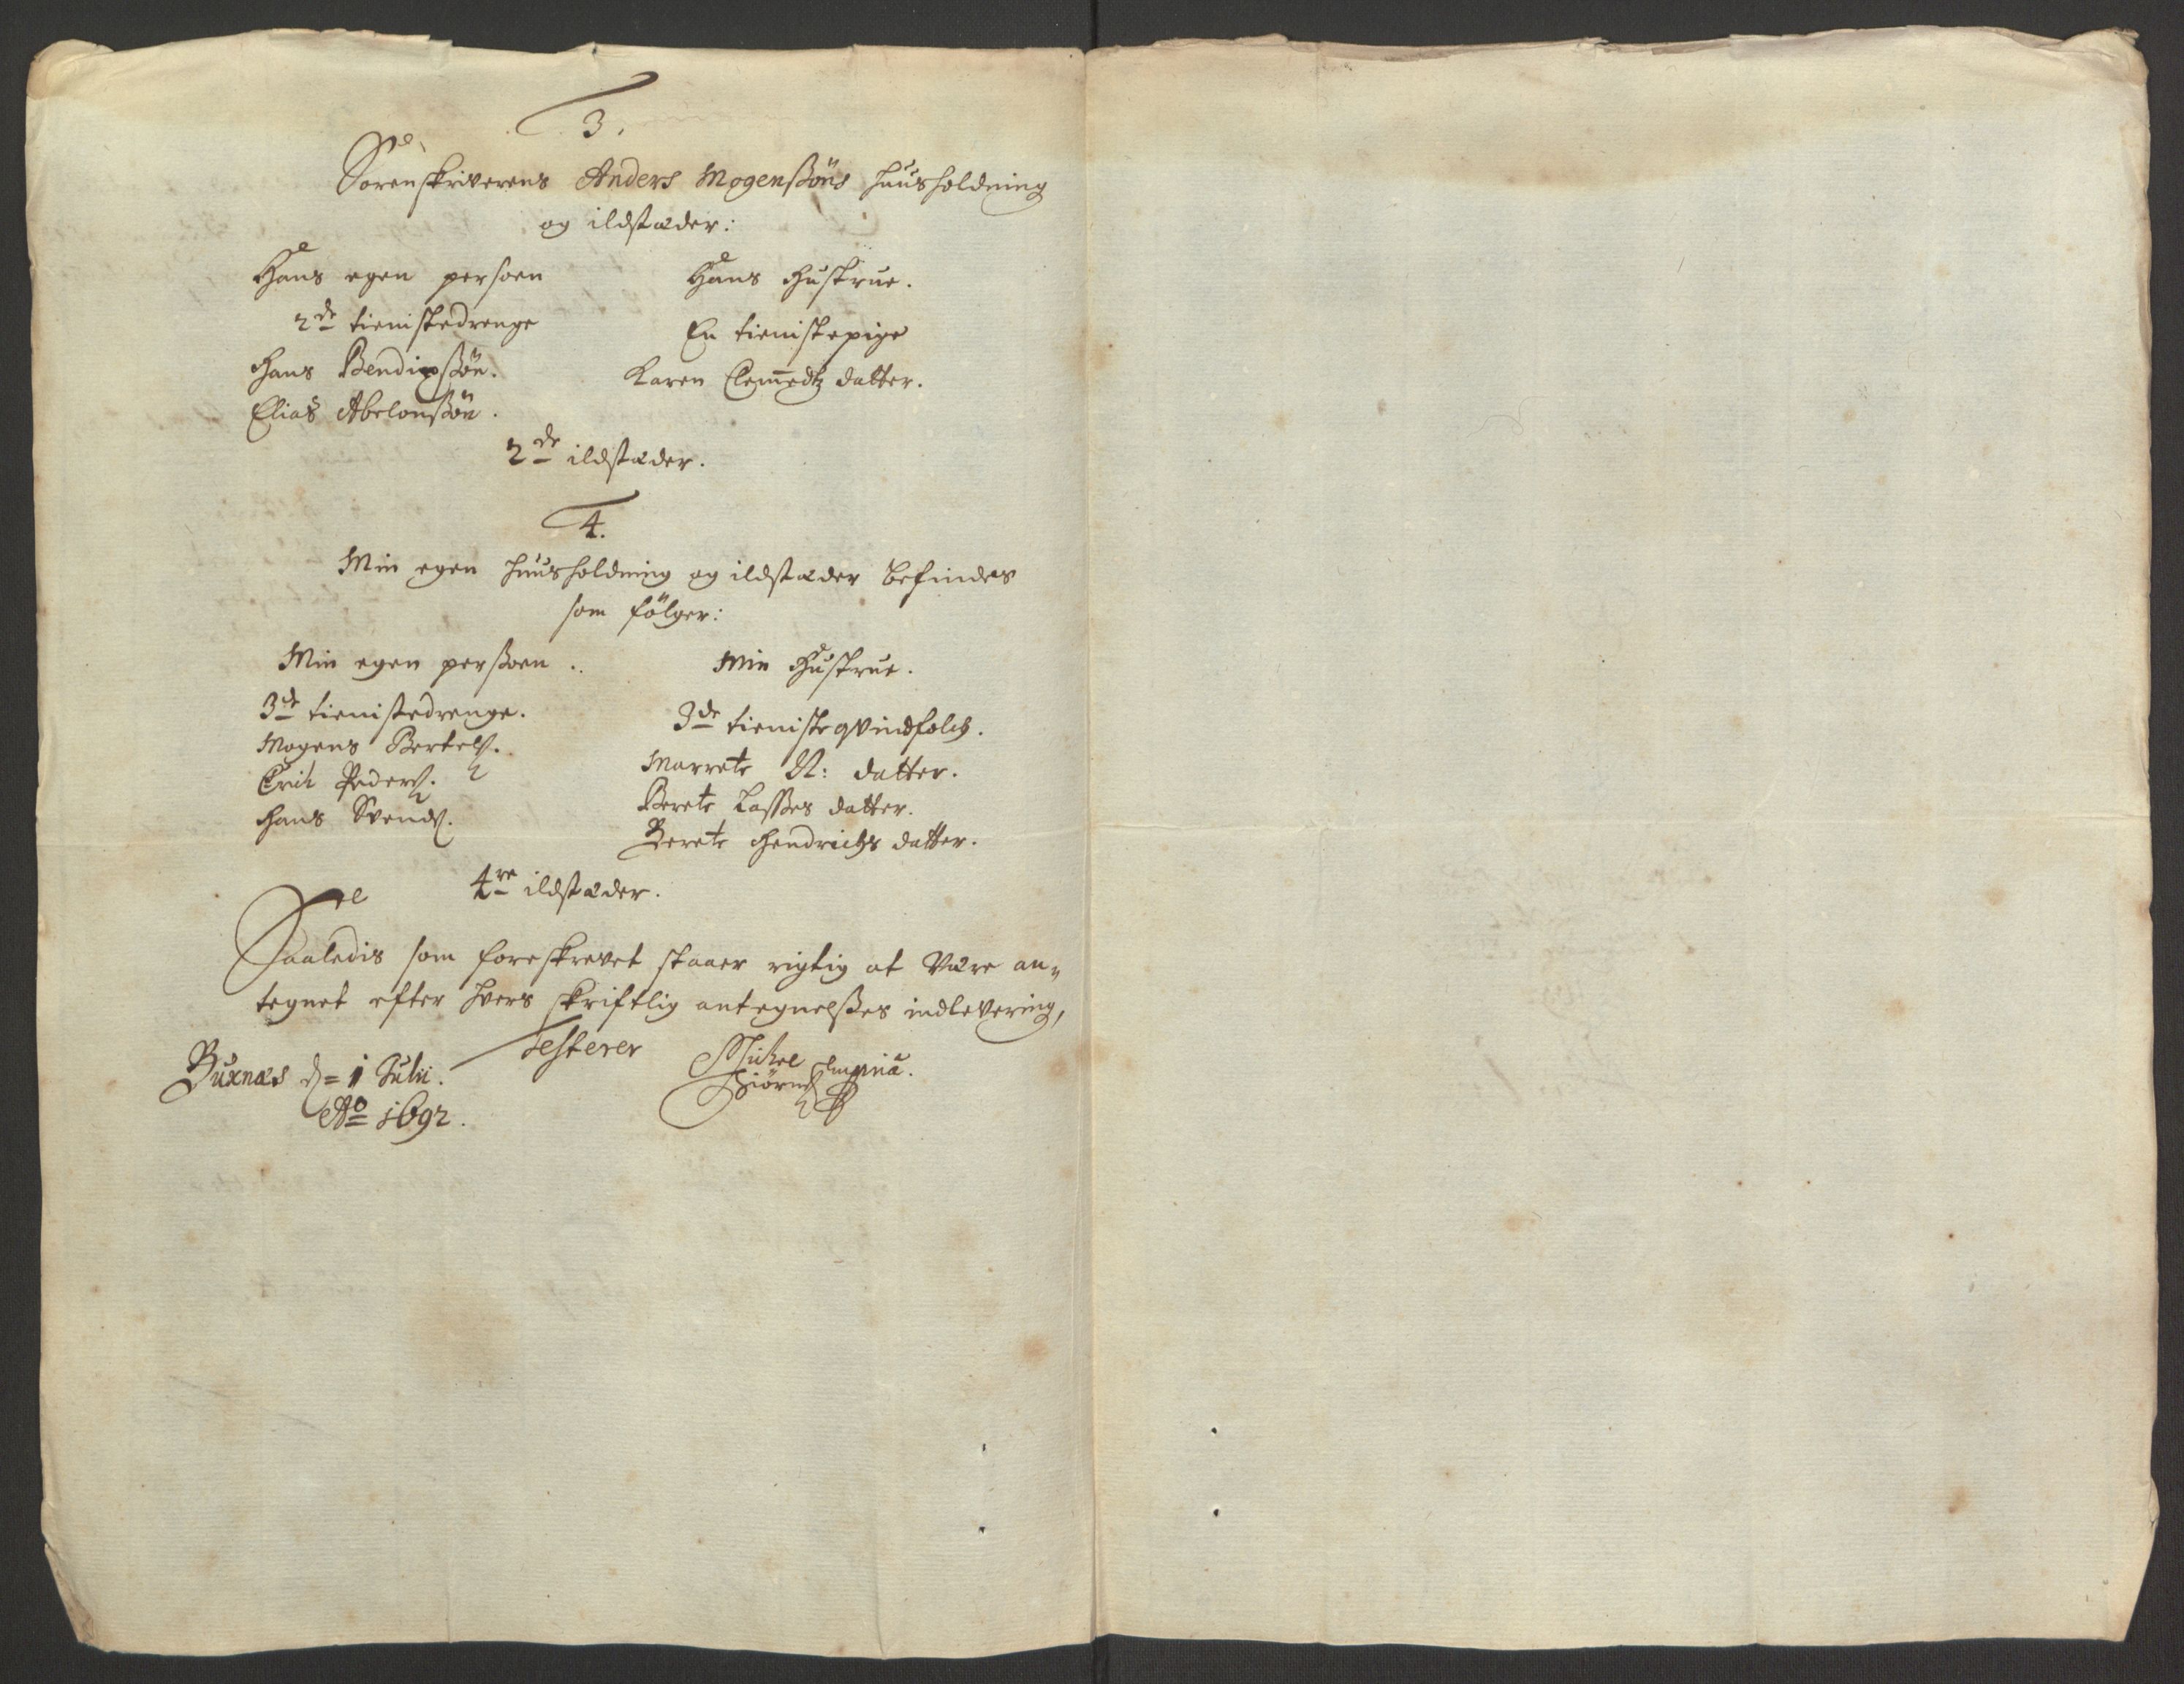 3.
Sorenskriverens Anders Mogenßöns huusholdning
og ildstæder:
Hans egen persoen
2de tienistedrenge
Hans Bendixßön.
Elias Abelonßön.
Hans Hustrue.
En tienistepige
Karen Clemedtz datter.
2de ildstæder.
4.
Min egen huusholdning og ildstæder befindes
som fölger:
Min egen perßoen.
3de tienistedrenge.
Mogens Bertels.
Erich Peders.
Hans Svends.
Min Hustrue.
3de tieniste qvindfolch.
Marrete N: datter.
Berete Laßes datter.
Berete Hendrichs datter.
4re ildstæder.
Saaledis som foreskrevet staaer rigtig at Være an-
tegnet efter hvers skriftlig antegnelßes indlevering,
Testerer
Buxnæs d= 1 Julii.
Ao 1692.
Michel
Biörns Empria.